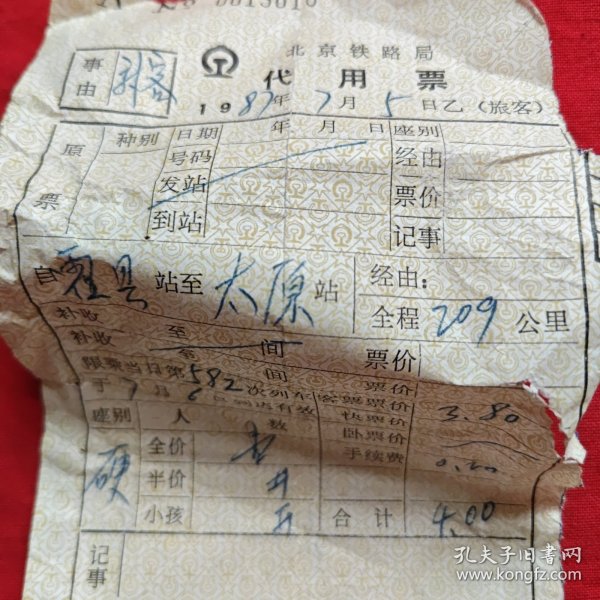 0015010
北京铁路局
事由
代用票
1987年7月5日乙(旅客)
原票
种别 日期 年 月 日 座别
号码 经由
发站 票价
到站 记事
自霍县站至太原站 经由:
全程209公里
补收 至 间 票价
补收 至 间 票价
限乘当日第582次列车 客票票价 3.80
于7月6日到达有效 快票价
座别 人数 卧票价
硬 全价 手续费 0.20
半价
小孩 合计 4.00
记事
孔夫子旧书网
www.kongfz.com